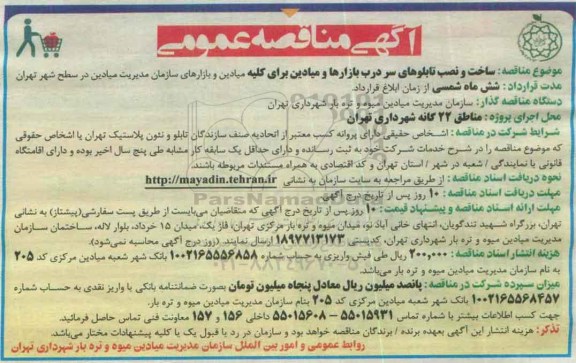 آگهی مناقصه عمومی
موضوع مناقصه: ساخت و نصب تابلوهای سر درب بازارها و میادین برای کلیه میادین و بازارهای سازمان مدیریت میادین در سطح شهر تهران
مدت قرارداد: شش ماه شمسی از زمان ابلاغ قرارداد.
دستگاه مناقصه گذار: سازمان مدیریت میادین میوه و تره بار شهرداری تهران
محل اجرای پروژه: مناطق ۲۲ گانه شهرداری تهران
شرایط شرکت در مناقصه: اشخاص حقیقی دارای پروانه کسب معتبر از اتحادیه صنف سازندگان تابلو و نئون پلاستیک تهران یا اشخاص حقوقی
که موضوع مناقصه را در شرح خدمات شرکت خود به ثبت رسانده و دارای حداقل یک سابقه کار مشابه طی پنج سال اخیر بوده و دارای اقامتگاه
قانونی یا نمایندگی / شعبه در شهر / استان تهران و کد اقتصادی به همراه مستندات مربوطه باشند.
نحوه دریافت اسناد مناقصه: از طریق مراجعه به سایت سازمان به نشانی http://mayadin.tehran.ir
مهلت دریافت اسناد مناقصه: ۱۰ روز پس از تاریخ درج آگهی
مهلت ارائه اسناد مناقصه و پیشنهاد قیمت: ۱۰ روز پس از تاریخ درج آگهی که متقاضیان می‌بایست از طریق پست سفارشی(پیشتاز) به نشانی
تهران، بزرگراه شهید تندگویان، انتهای خانی آباد نو، میدان میوه و تره بار مرکزی تهران، فاز یک، میدان ۱۵ خرداد، بلوار لاله، ساختمان سازمان
مدیریت میادین میوه و تره بار شهرداری تهران، کدپستی ۱۸۹۷۷۱۳۱۷۳ ارسال نمایند. (روز درج آگهی محاسبه نمی‌شود).
هزینه انتشار اسناد مناقصه: ۲۰۰,۰۰۰ ریال طی فیش واریزی به حساب شماره ۱۰۰۲۱۶۵۵۵۶۸۵۸ بانک شهر شعبه میادین مرکزی کد ۲۰۵
به نام سازمان مدیریت میادین میوه و تره بار می‌باشد.
میزان سپرده شرکت در مناقصه: پانصد میلیون ریال معادل پنجاه میلیون تومان بصورت ضمانتنامه بانکی یا واریز نقدی به حساب شماره
۱۰۰۲۱۶۵۵۶۸۴۵۷ بانک شهر شعبه میادین مرکزی کد ۲۰۵ بنام سازمان مدیریت میادین میوه و تره بار.
جهت کسب اطلاعات بیشتر با شماره تماس ۵۵۰۱۵۹۳۱ – ۵۵۰۱۵۶۰۸ داخلی ۱۵۶ و ۱۵۷ معاونت فنی تماس حاصل فرمائید.
تذکر: هزینه انتشار این آگهی بعهده برنده / برندگان مناقصه خواهد بود و سازمان در رد یا قبول یک یا کلیه پیشنهادات مختار می‌باشد.
روابط عمومی و امور بین الملل سازمان مدیریت میادین میوه و تره بار شهرداری تهران